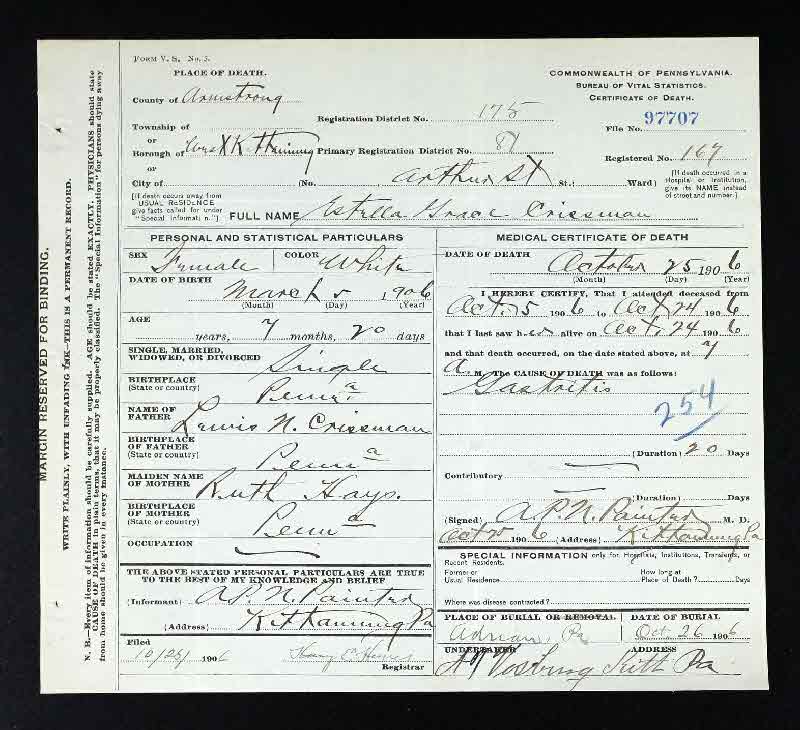 FORM V. S. No. 5.
PLACE OF DEATH.
County of Armstrong
Township of
or
Borough of West Kittanning
City of
COMMONWEALTH OF PENNSYLVANIA.
BUREAU OF VITAL STATISTICS.
CERTIFICATE OF DEATH.
Registration District No. 175
File No. 97707
Primary Registration District No. 81
Registered No. 167
(No. Arthur St St.; Ward)
[If death occurred in a Hospital or Institution, give its NAME instead of street and number.]
[If death occurs away from USUAL RESIDENCE give facts called for under "Special Information."]
FULL NAME Estella Grace Crissman
PERSONAL AND STATISTICAL PARTICULARS
SEX Female COLOR White
DATE OF BIRTH March 5 1906
(Month) (Day) (Year)
AGE
years, 7 months, 20 days
SINGLE, MARRIED, WIDOWED, OR DIVORCED Single
BIRTHPLACE (State or country) Penna
NAME OF FATHER Lewis N. Crissman
BIRTHPLACE OF FATHER (State or country) Penna
MAIDEN NAME OF MOTHER Ruth Hays.
BIRTHPLACE OF MOTHER (State or country) Penna
OCCUPATION
THE ABOVE STATED PERSONAL PARTICULARS ARE TRUE TO THE BEST OF MY KNOWLEDGE AND BELIEF
(Informant) A.P.N. Painter
(Address) Kittanning Pa
Filed
10/25/ 1906 Harry Registrar
MEDICAL CERTIFICATE OF DEATH
DATE OF DEATH October 25 1906
(Month) (Day) (Year)
I HEREBY CERTIFY, That I attended deceased from
Oct. 5 1906 to Oct 24 1906
that I last saw her alive on Oct. 24 1906
and that death occurred, on the date stated above, at 7
A M. The CAUSE OF DEATH was as follows:
Gastritis
254
(Duration) 20 Days
Contributory
(Duration) Days
(Signed) A.P.N. Painter M. D.
Oct 25 1906 (Address) Kittanning Pa
SPECIAL INFORMATION only for Hospitals, Institutions, Transients, or Recent Residents.
Former or Usual Residence
How long at Place of Death? Days
Where was disease contracted?
PLACE OF BURIAL OR REMOVAL DATE OF BURIAL
Adrian, Pa Oct 26 1906
UNDERTAKER ADDRESS
Vosburg Kitt Pa
MARGIN RESERVED FOR BINDING.
WRITE PLAINLY, WITH UNFADING INK—THIS IS A PERMANENT RECORD.
N. B.—Every item of information should be carefully supplied. AGE should be stated EXACTLY. PHYSICIANS should state
CAUSE OF DEATH in plain terms, that it may be properly classified. The "Special Information" for persons dying away
from home should be given in every instance.